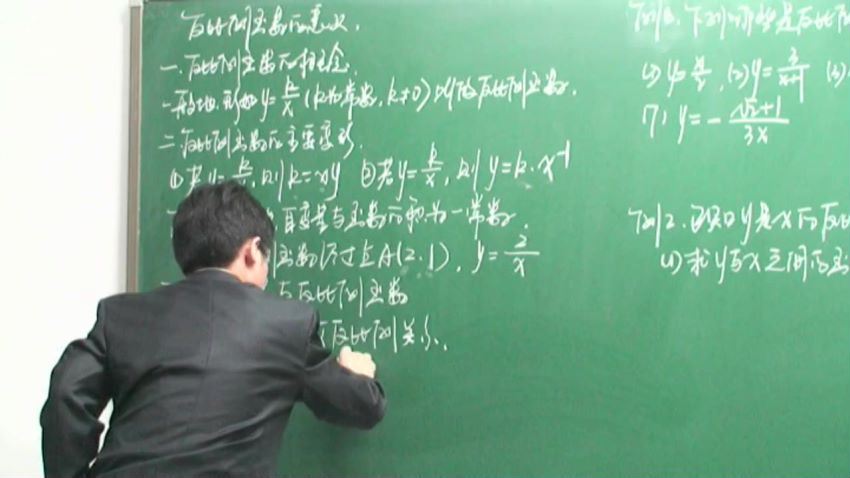 反比例函数的意义.
一.反比例函数的概念
一般地,形如y=k/x(k为常数,k≠0)叫做反比例函数.
二.反比例函数的主要变形.
①若y=k/x,则k=xy ②若y=k/x,则y=k·x⁻¹
自变量与函数的积为一常数.
函数 过点A(2,1), y=2/x
与反比例函数
反比例关系.
例1.下列哪些是反比例
(1)y=x/ (2)y=3/(x+1) (3)
7) y=-(√2+1)/3x
例2.已知y是x的反比
(1)求y与x之间的函